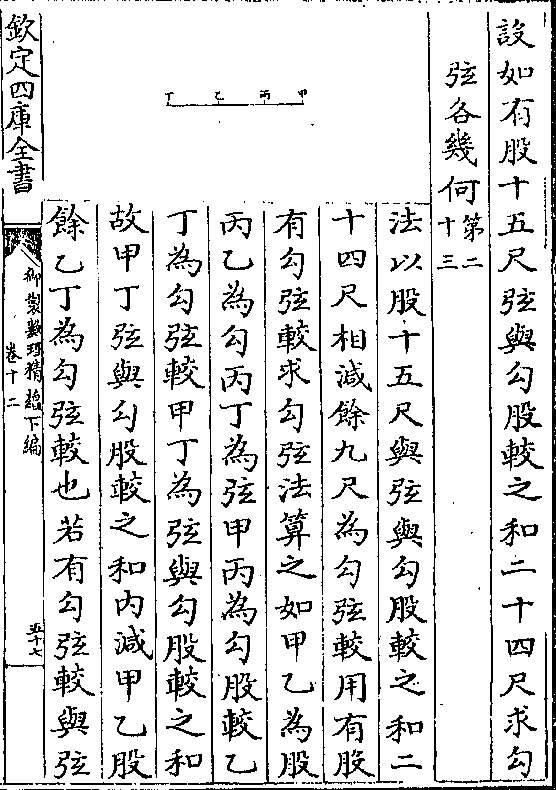 設如有股十五尺弦與勾股較之和二十四尺求勾
弦各幾何第二十三
甲 丙 乙 丁
法以股十五尺與弦與勾股較之和二
十四尺相減餘九尺為勾弦較用有股
有勾弦較求勾弦法算之如甲乙為股
丙乙為勾丙丁為弦甲丙為勾股較乙
丁為勾弦較甲丁為弦與勾股較之和
故甲丁弦與勾股較之和内減甲乙股
餘乙丁為勾弦較也若有勾弦較與弦
欽定四庫全書
御製數理精蘊下編
卷十二
五十七